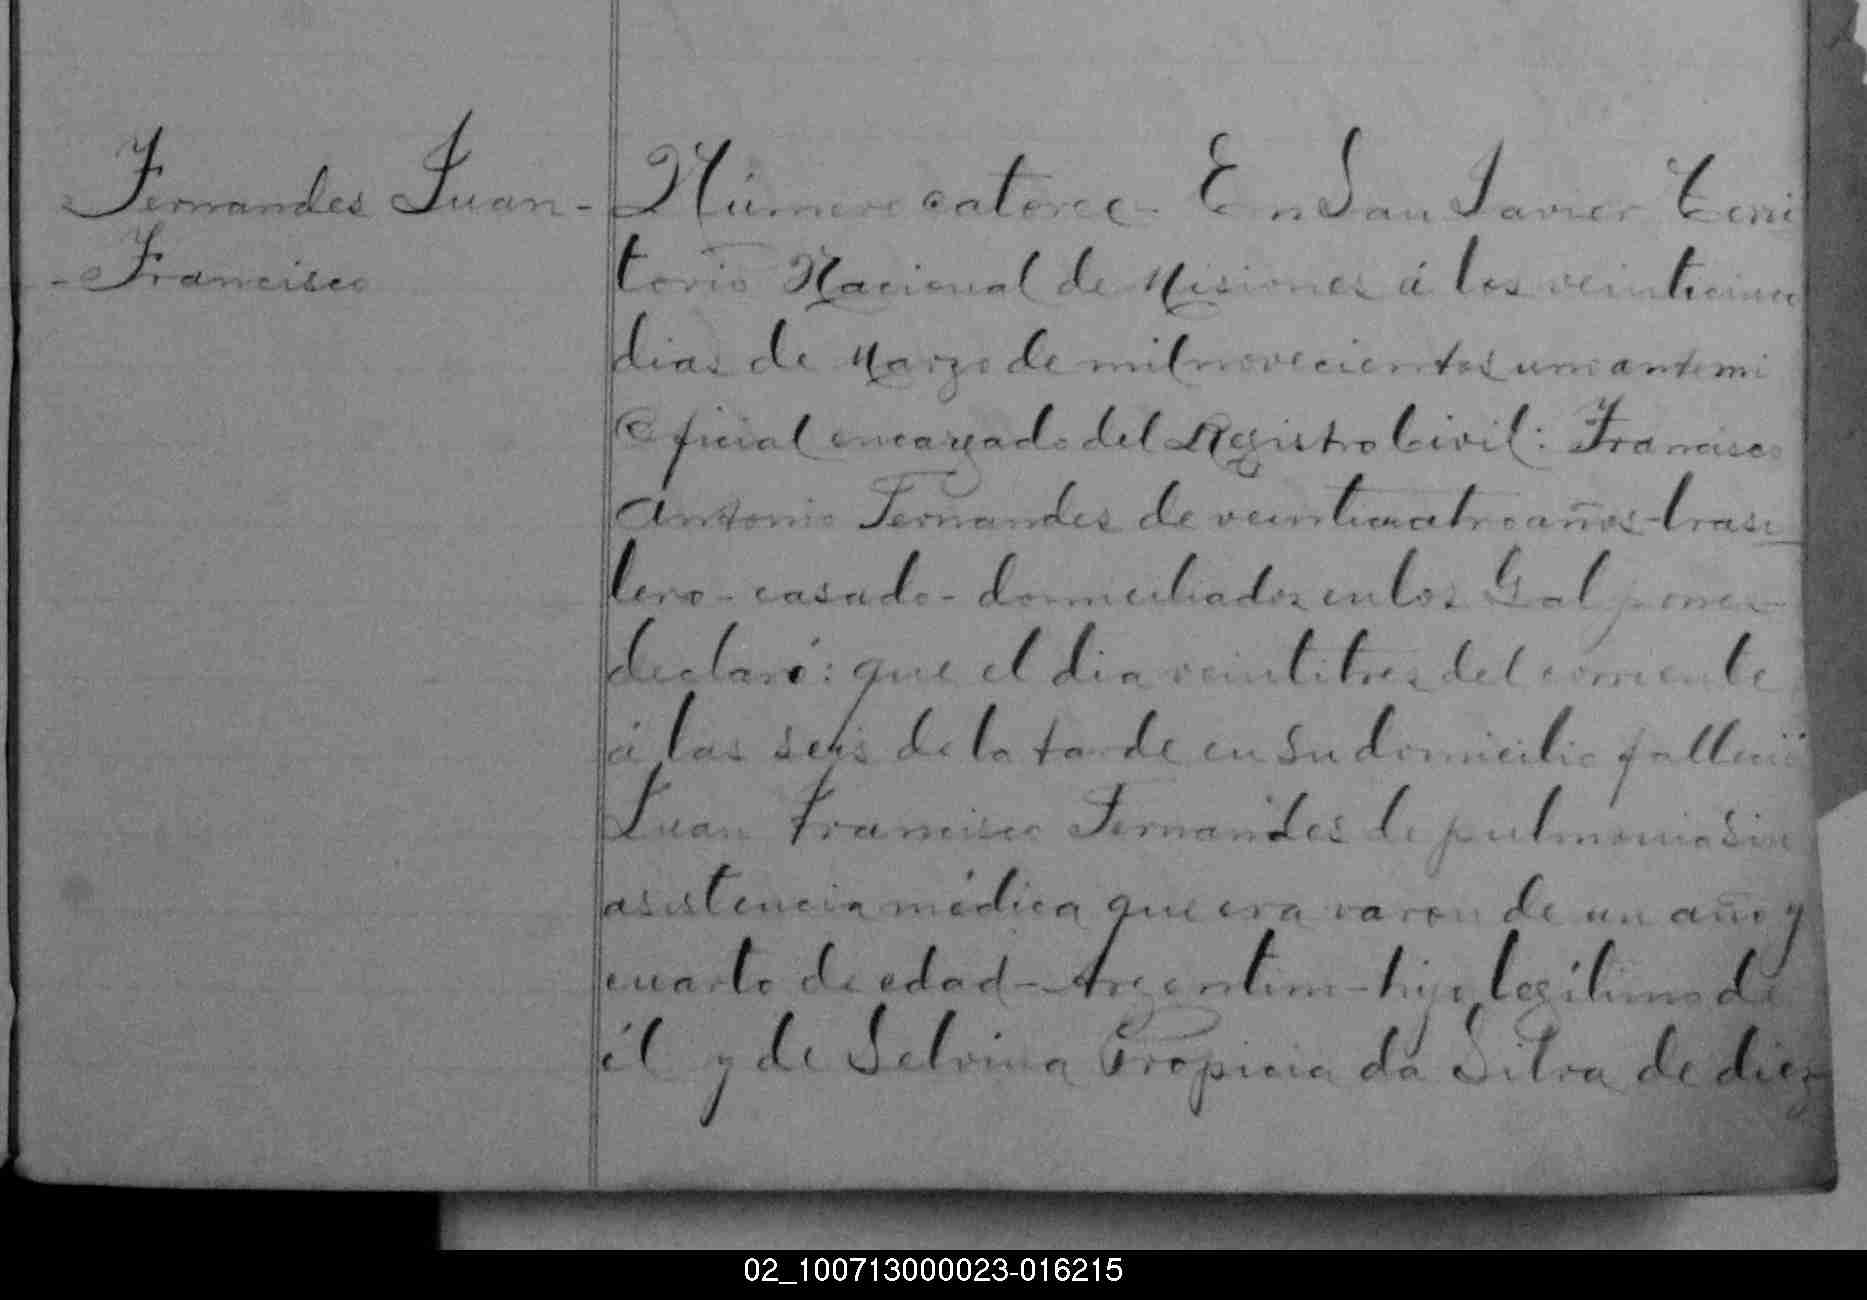 Fernandes Juan-
-Francisco
Número catorce- En San Javier Terri
torio Nacional de Misiones á los veinticinco
dias de Marzo de mil novecientos uno ante mi
Oficial encargado del Registro Civil: Francisco
Antonio Fernandes de veinticuatro años-brasi
lero-casado-domiciliados en los Galpones-
declaró: que el dia veintitres del corriente
á las seis de la tarde en su domicilio falleció
Juan Francisco Fernandes de pulmonia sin
asistencia médica que era varon de un año y
cuarto de edad-Argentino-hijo legítimo de
él y de Selvina Propicia da Silva de diez
02_100713000023-016215